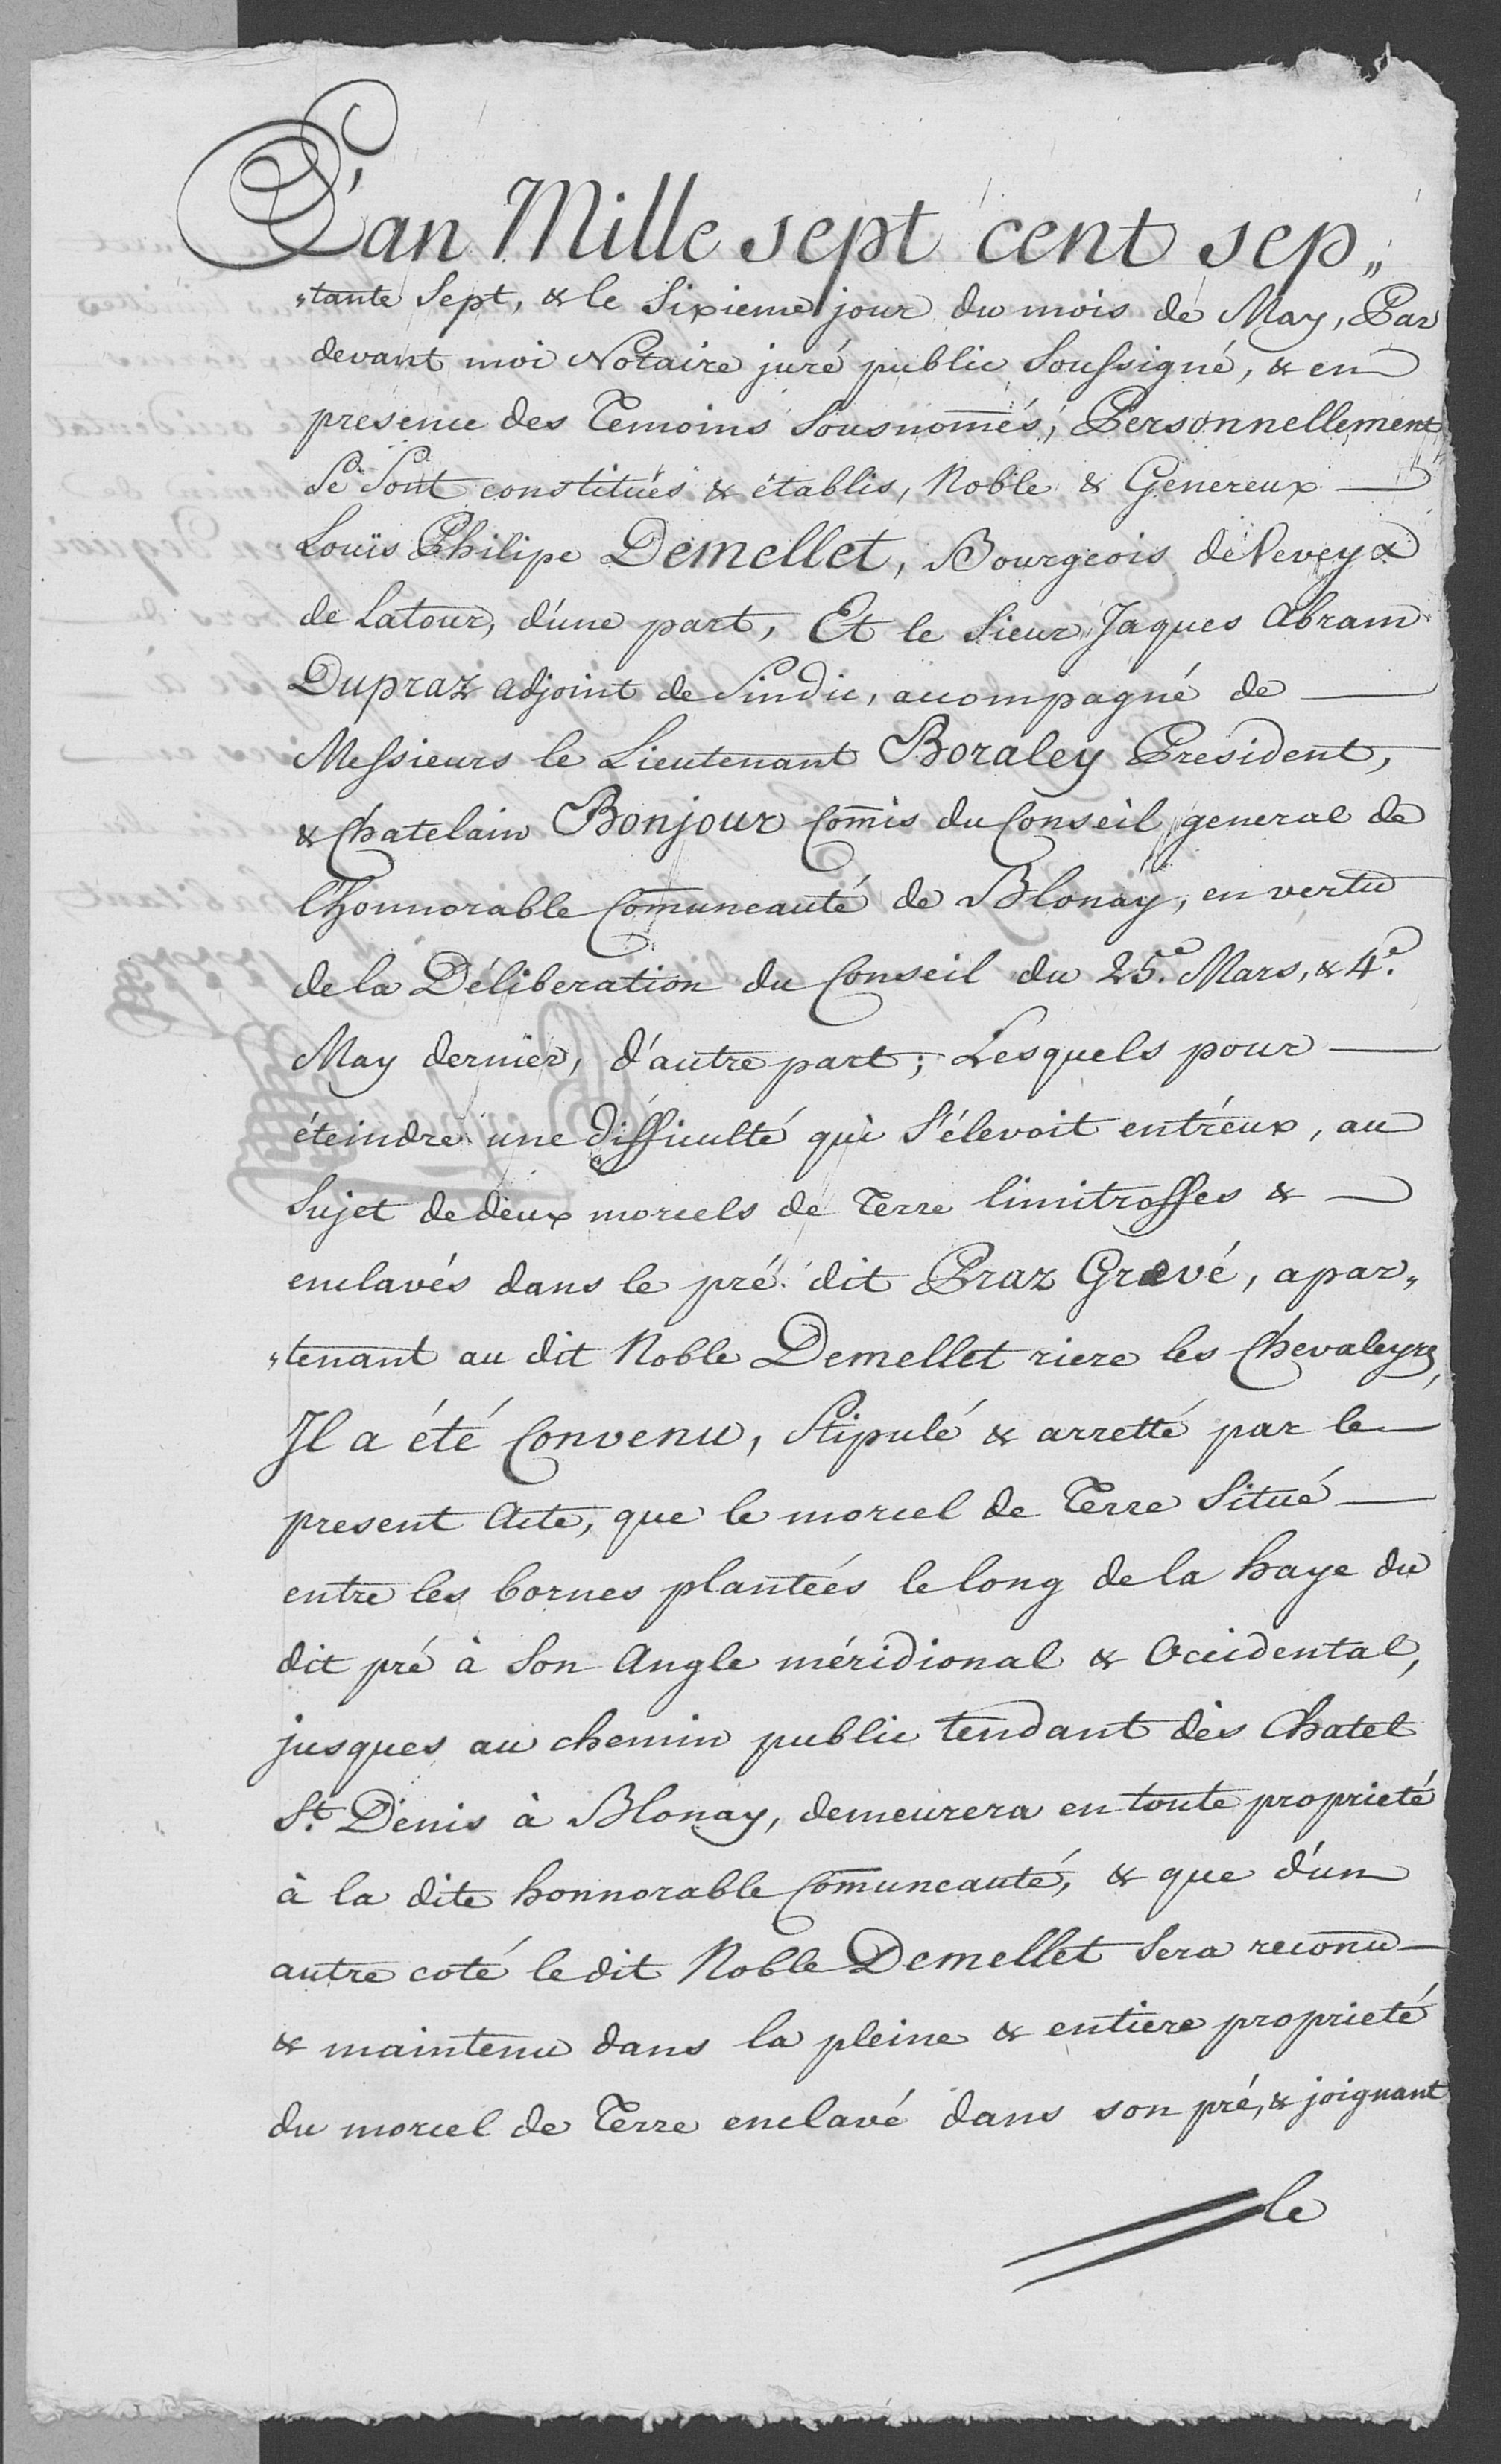 L'an Mille sept cent sep„
„tante Sept, & le Sixieme jour du mois de May, Par
devant moi Notaire juré public Soussigné, & en
presence des Temoins Sousnom̄és, Personnellement
Se Sont constitués & établis, Noble & Genereux —
Louïs Philipe Demellet, Bourgeois de Vevey &
de Latour, d'une part, Et le Sieur Jaques Abram
Dupraz adjoint de Sindic, accompagné de —
Messieurs le Lieutenant Boraley President,
& Chatelain Bonjour Com̄is du Conseil general de
l'honnorable Com̄uneauté de Blonay, en vertu
de la Déliberation du Conseil du 25.e Mars, & 4.e
May dernier, d'autre part; Lesquels pour —
éteindre une difficulté qui S'élevoit entr'eux, au
Sujet de deux morcels de Terre limitroffes & —
enclavés dans le pré dit Praz Gravé, apar„
„tenant au dit Noble Demellet riere les Chevaleyres,
Il a été Convenu, Stipulé & arretté par le —
present Acte, que le morcel de Terre Situé —
entre les bornes plantées le long de la haye du
dit pré à Son Angle méridional & Occidental,
jusques au chemin public tendant dès Chatel
St. Denis à Blonay, demeurera en toute proprieté
à la dite honnorable Com̄uneauté, & que d'un
autre coté le dit Noble Demellet Sera reconu —
& maintenu dans la pleine & entiere proprieté
du morcel de Terre enclavé dans son pré, & joignant
le